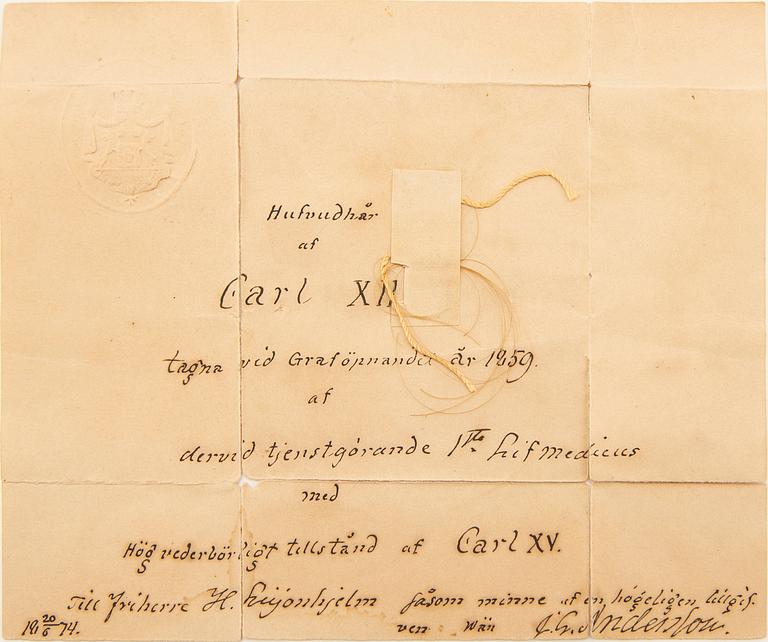 Hufvudhår
af
Carl XII
tagna vid Graföpnandet år 1859.
af
dervid tjenstgörande 1ste Lifmedicus
med
Hög vederbörligt tillstånd af Carl XV.
Till Friherre H. Leijonhjelm såsom minne af en högeligen tillgif.
18 20/6 74. ven wän J. G. Andersson.